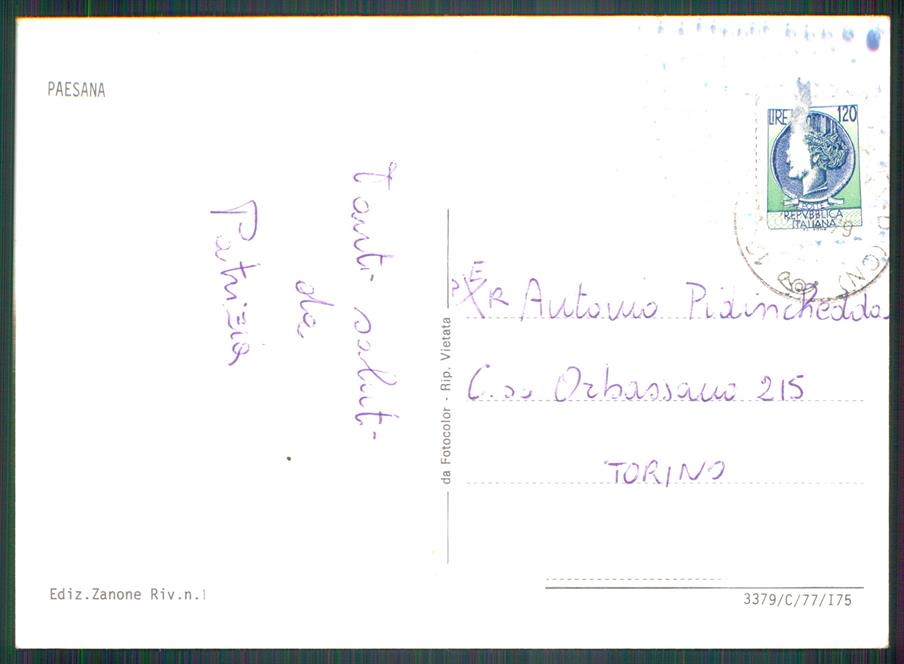 PAESANA
Tanti saluti
da
Patrizia
da Fotocolor - Rip. Vietata
LIRE 120
POSTE
REPVBBLICA
ITALIANA
PER Antonio Pidinchedda
C.so Orbassano 215
TORINO
Ediz.Zanone Riv.n.1
3379/C/77/I75